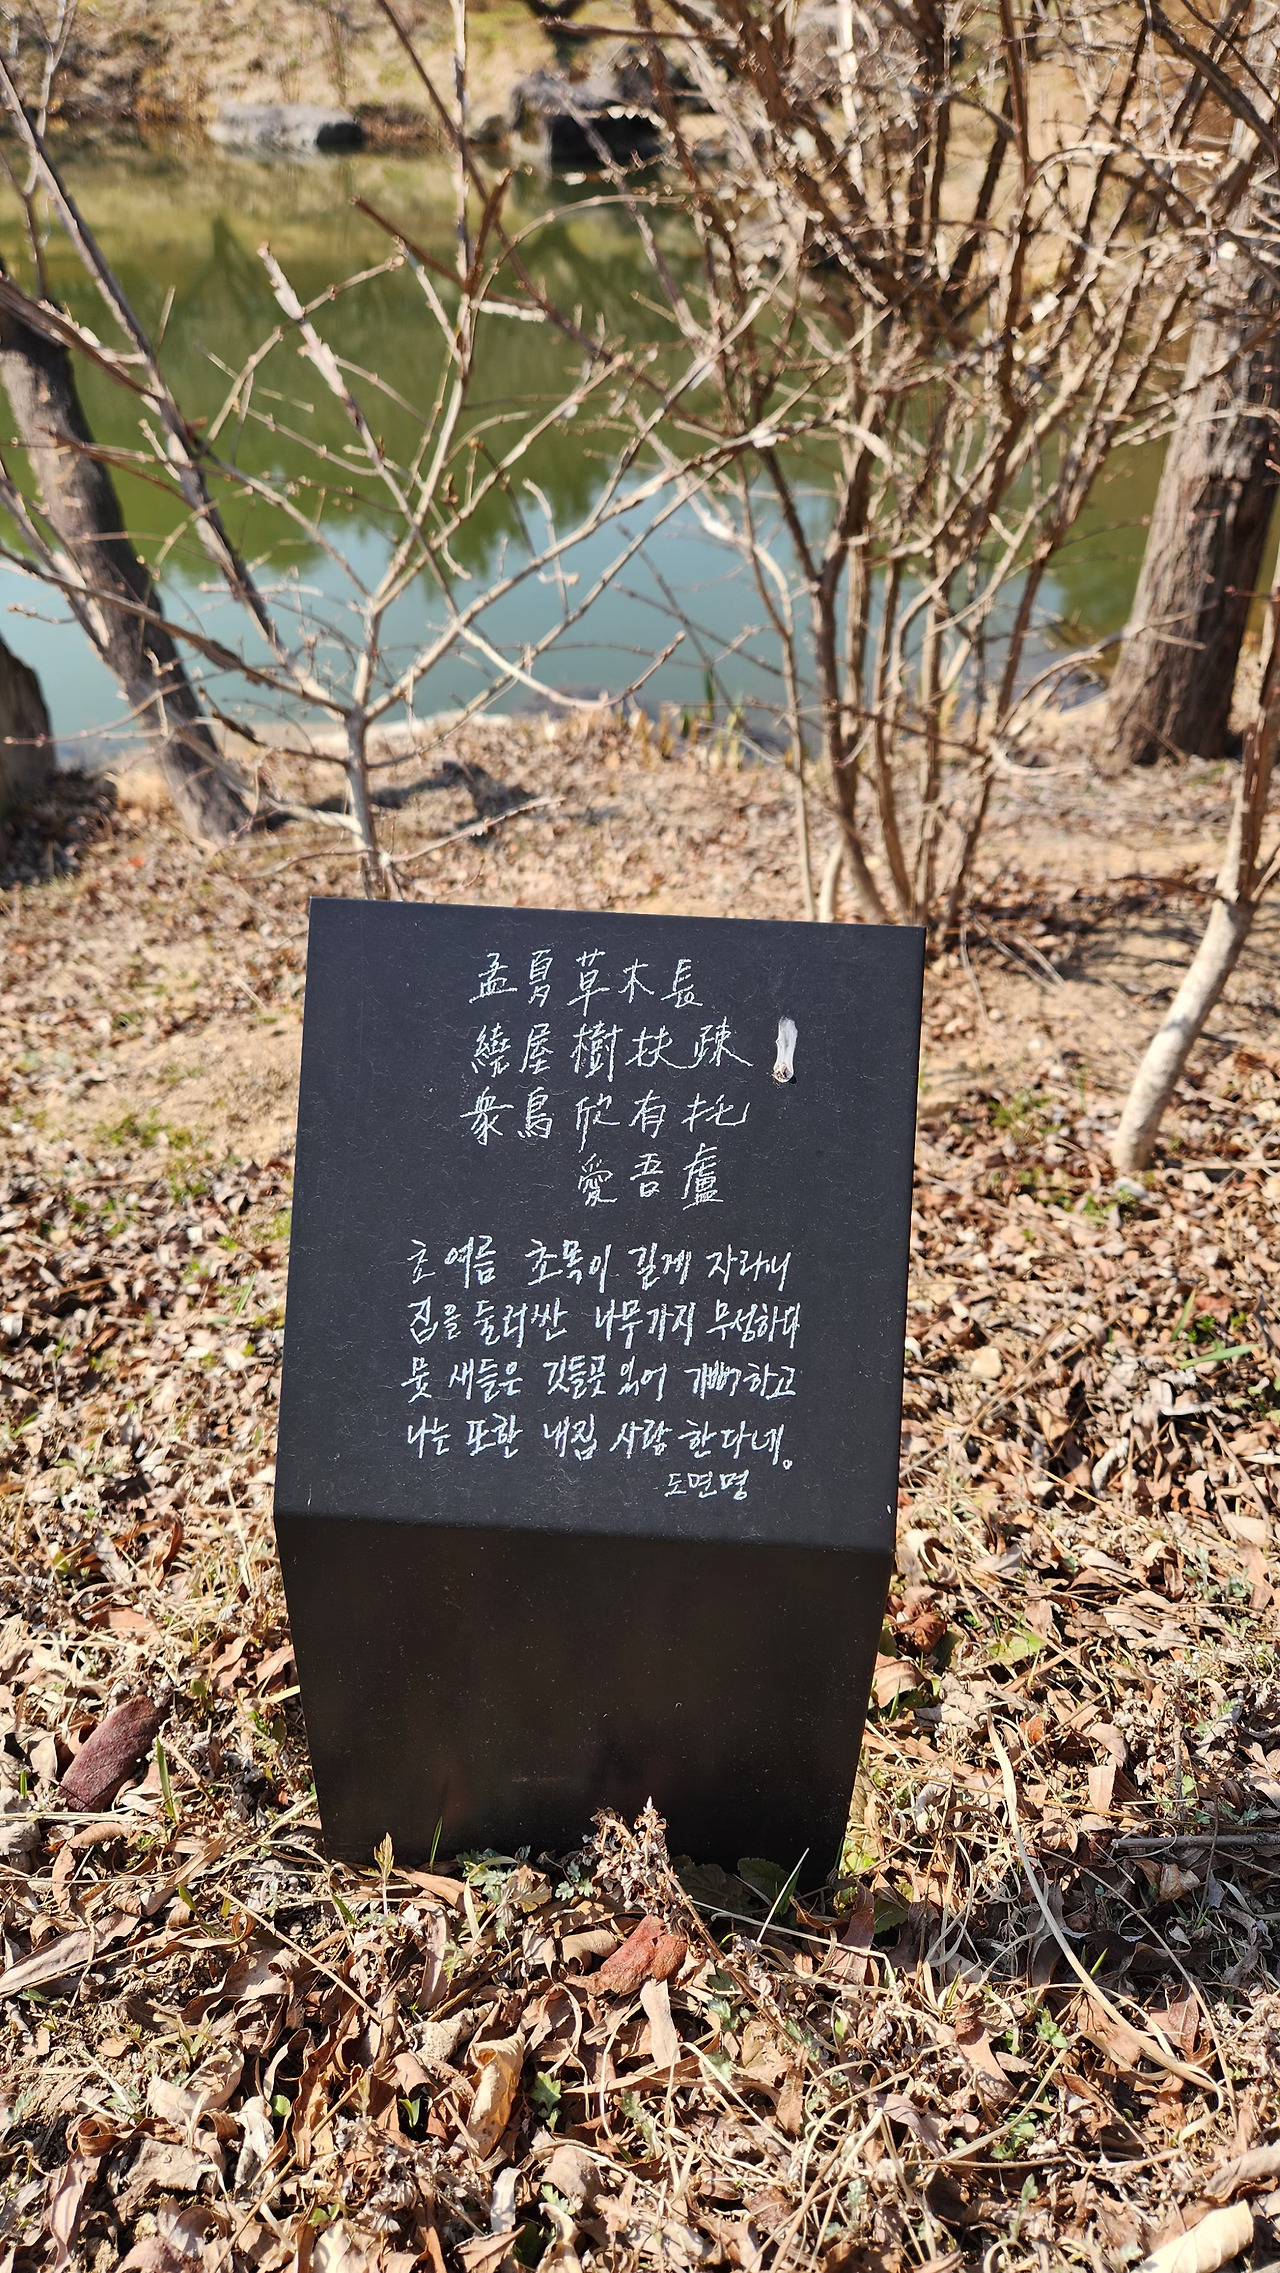 孟夏草木長
繞屋樹扶疎
衆鳥欣有托
愛吾盧
초여름 초목이 길게 자라니
집을 둘러싼 나무가지 무성하다
뭇 새들은 깃들곳 있어 기뻐하고
나는 또한 내집 사랑 한다네。
도연명